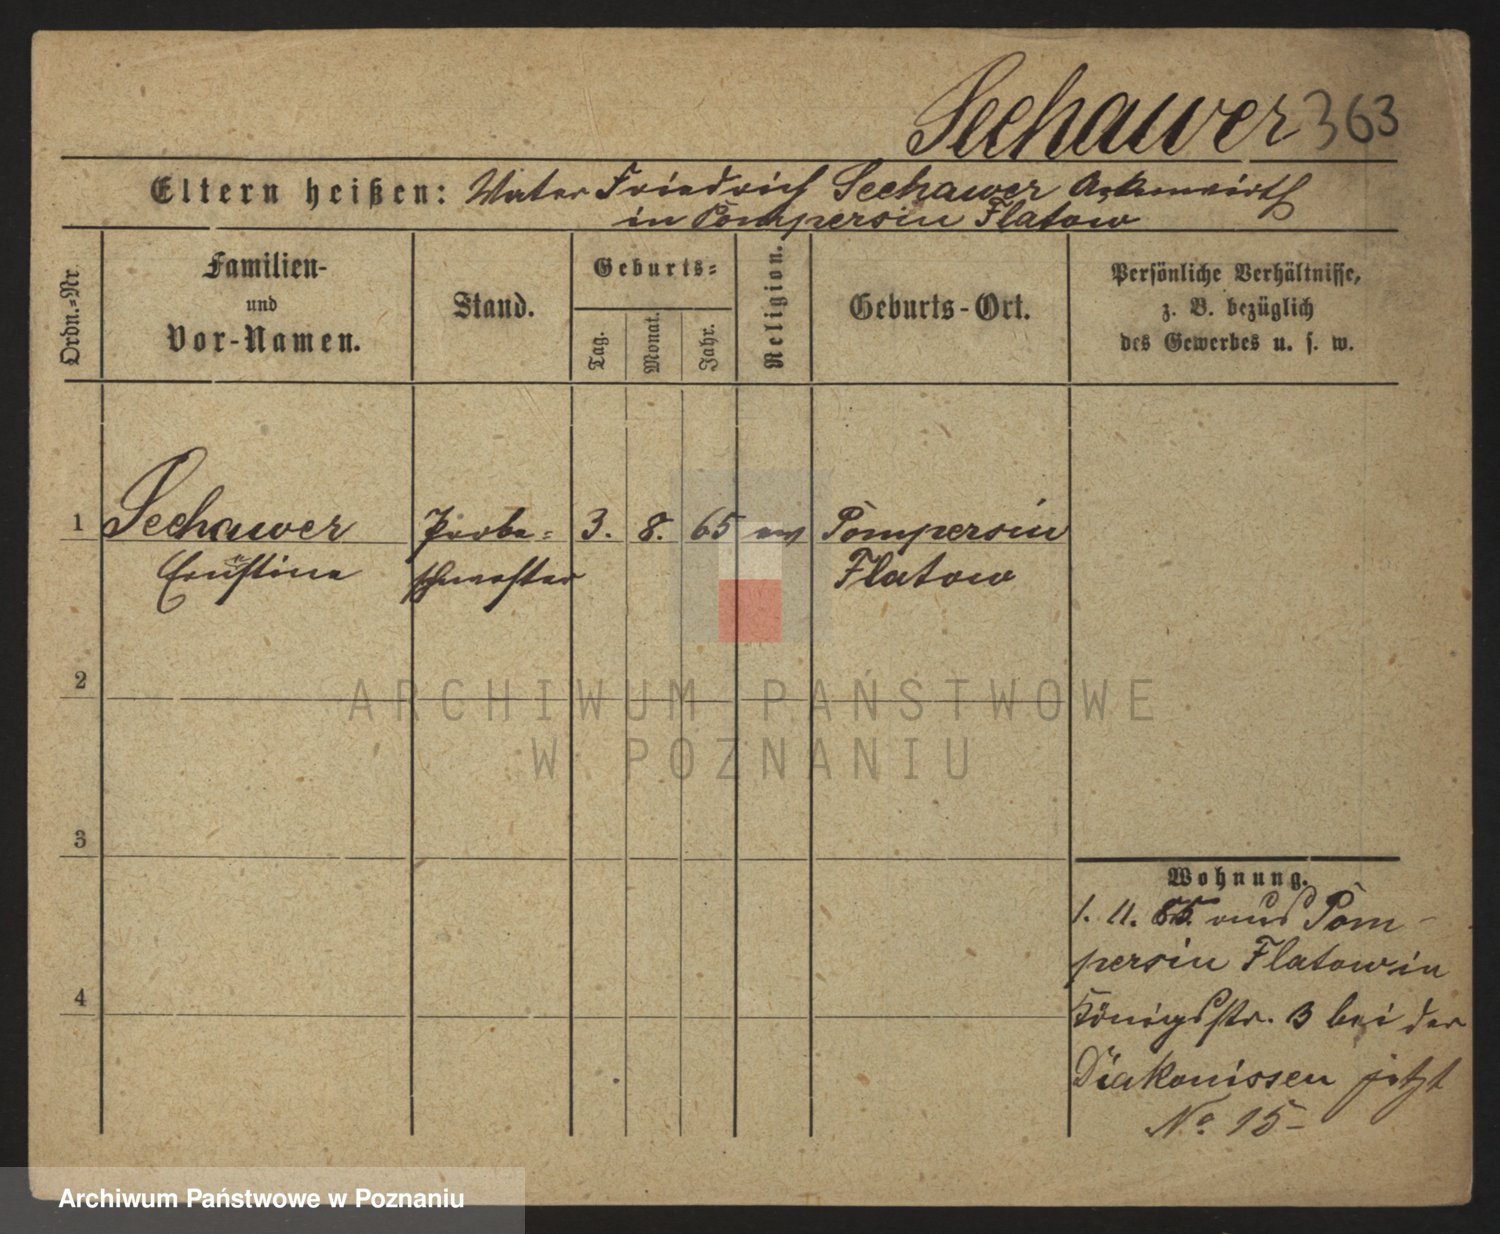 Seehawer 363
Eltern heißen: Vater Friedrich Seehawer Ackerwirth
in Pompersin Flatow
Ordn.-Nr.
Familien-
und
Vor-Namen.
Stand.
Geburts-
Tag.
Monat.
Jahr.
Religion.
Geburts-Ort.
Persönliche Verhältnisse,
z. B. bezüglich
des Gewerbes u. s. w.
1 Seehawer Probe- 3. 8. 65 ev Pompersin
Ernstine schwester Flatow
2
3
4
Wohnung.
1. 11. 85. aus Pom-
persin Flatow in
Königsstr. 3 bei der
Diakonissen jetzt
No. 15-
ARCHIWUM PAŃSTWOWE
W POZNANIU
Archiwum Państwowe w Poznaniu